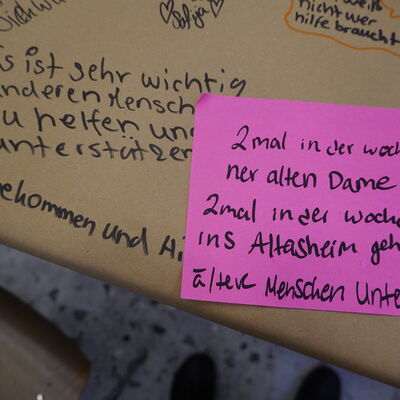 Sofija
weiß
nicht wer
hilfe braucht
s ist sehr wichtig
nderen Mensch
u helfen und
unterstützen
ekommen und Hi
2mal in der woch
ner alten Dame
2mal in der woche
ins Altasheim geh
ältere Menschen Unte